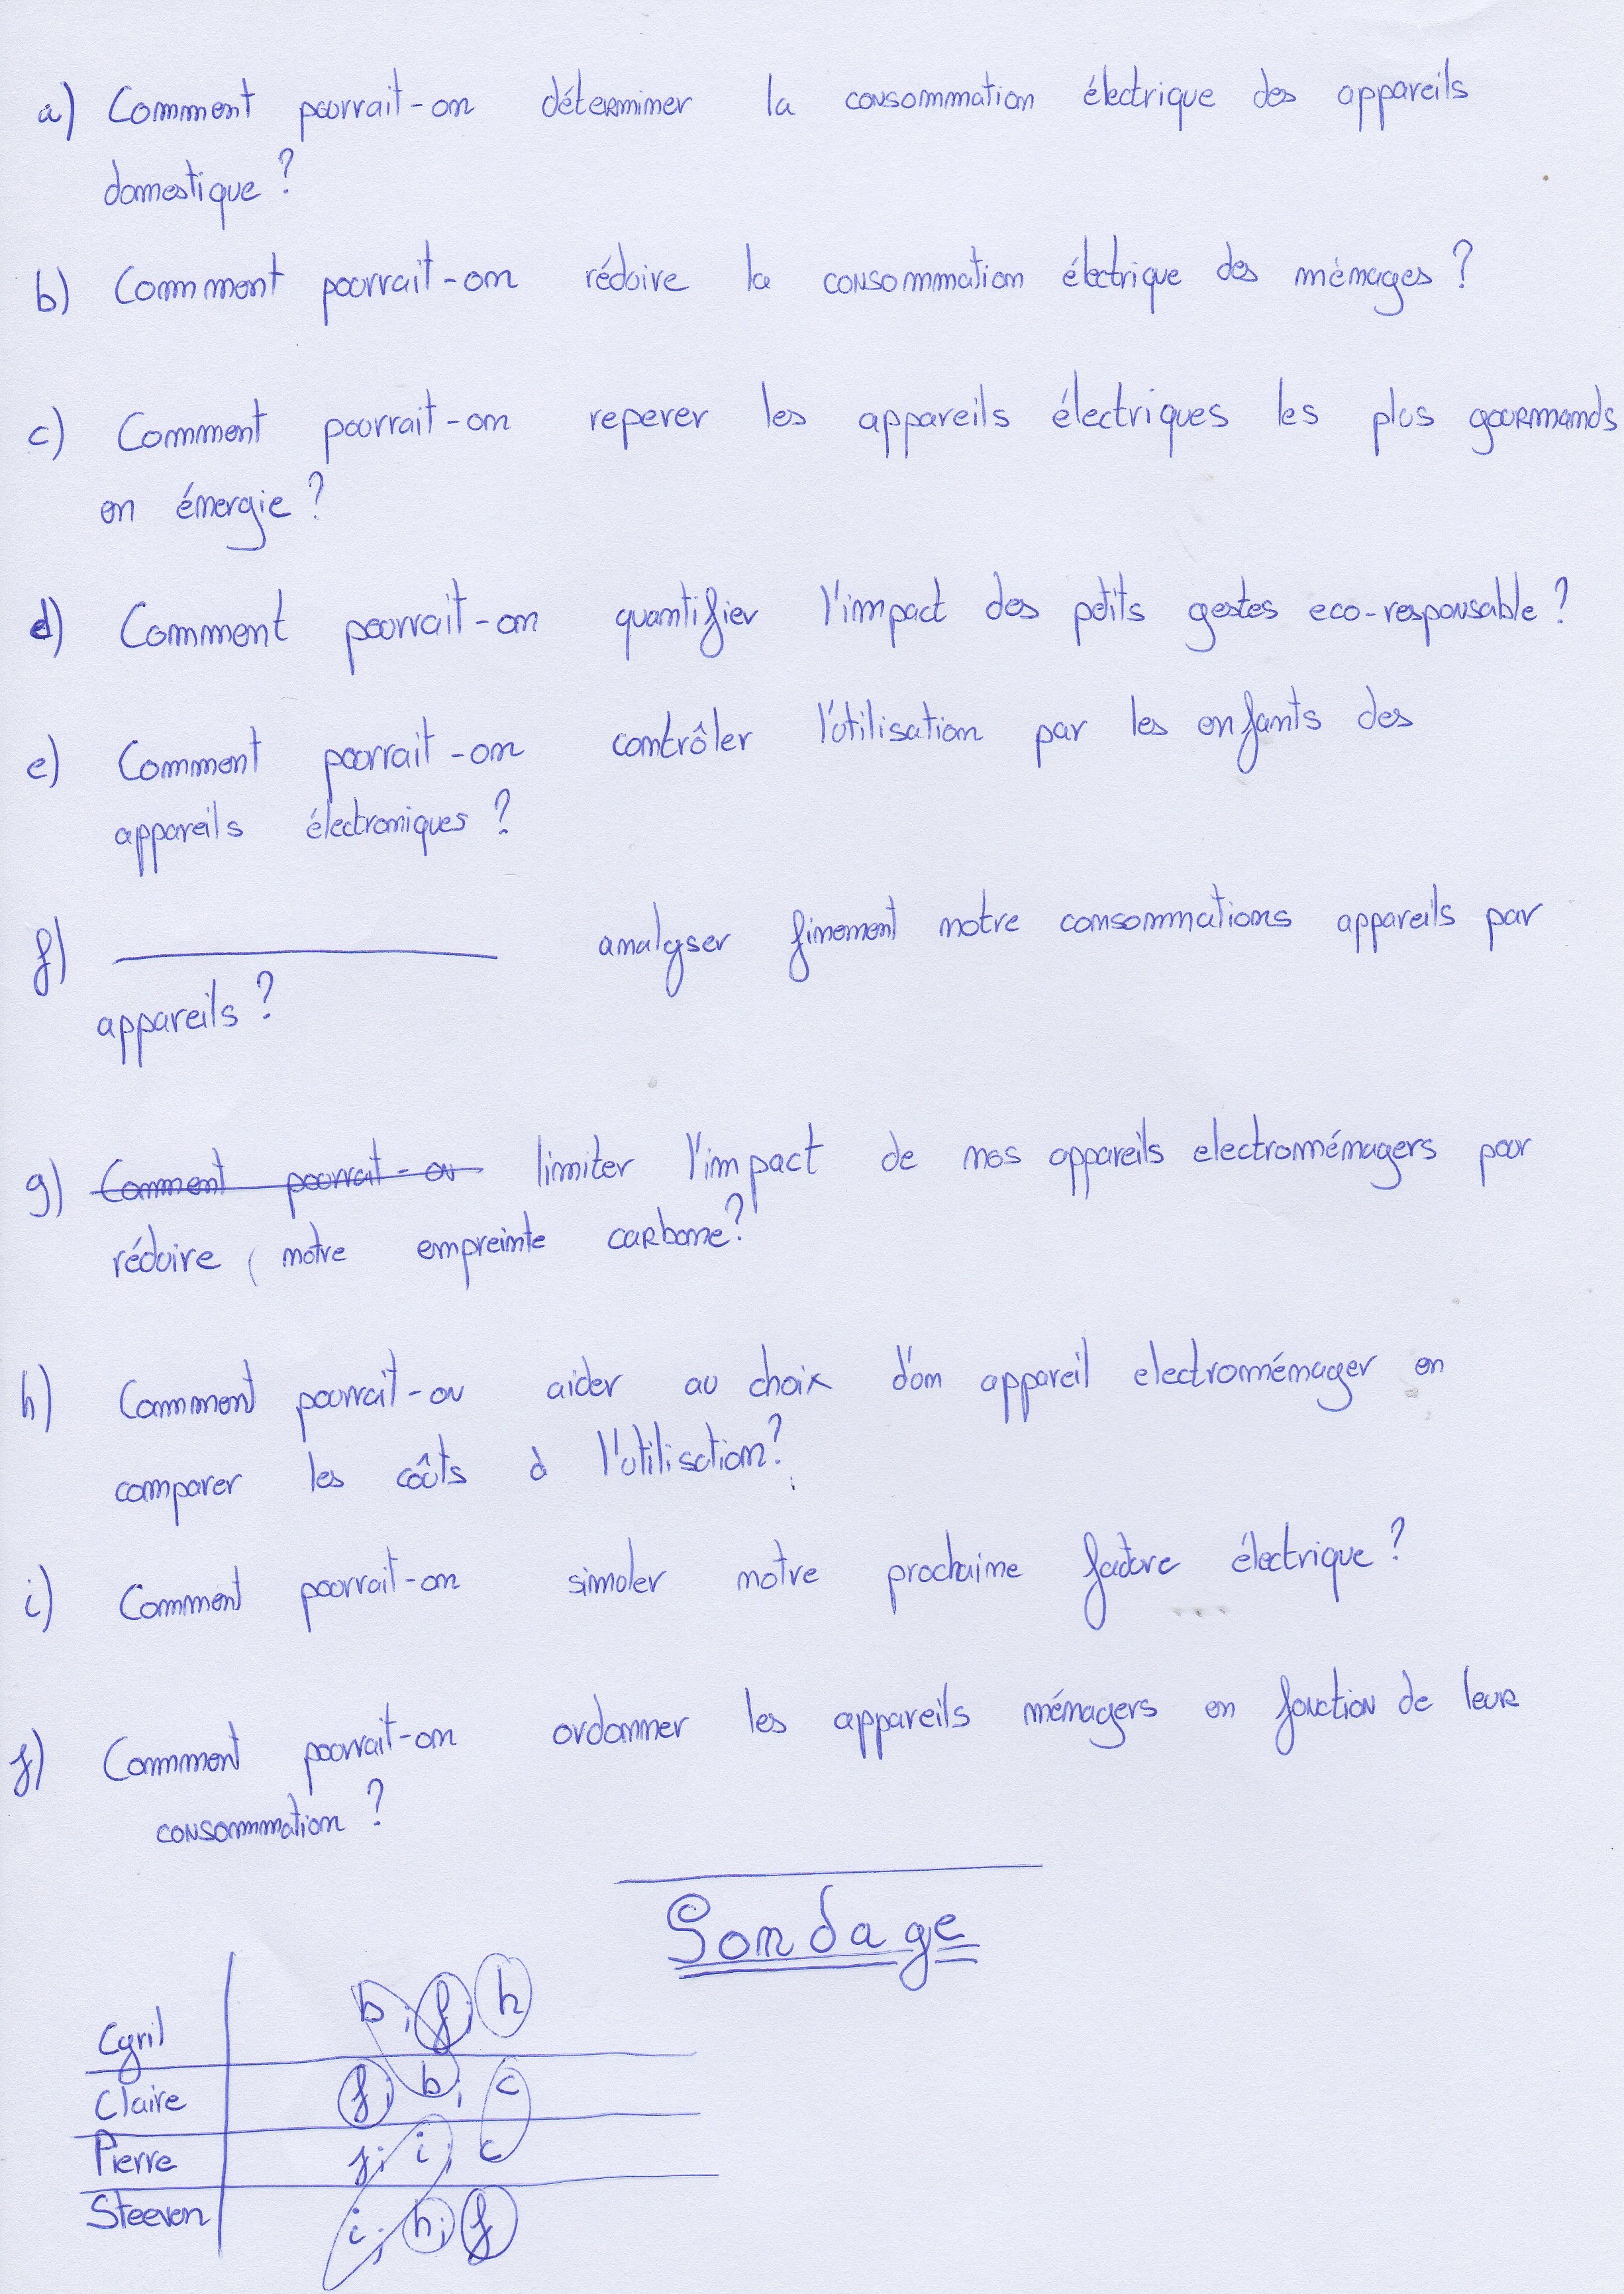 a) Comment pourrait-on déterminer la consommation électrique des appareils
domestique ?
b) Comment pourrait-on réduire la consommation électrique des ménages ?
c) Comment pourrait-on reperer les appareils électriques les plus gourmands
en énergie ?
d) Comment pourrait-on quantifier l'impact des petits gestes eco-responsable ?
e) Comment pourrait-on contrôler l'utilisation par les enfants des
appareils électroniques ?
f) analyser finement notre consommations appareils par
appareils ?
g) Comment pourrait-on limiter l'impact de nos appareils electroménagers pour
réduire notre empreinte carbone ?
h) Comment pourrait-on aider au choix d'un appareil electroménager en
comparer les coûts à l'utilisation ?
i) Comment pourrait-on simuler notre prochaine facture électrique ?
j) Comment pourrait-on ordonner les appareils ménagers en fonction de leur
consommation ?
Sondage
Cyril b; f; h
Claire f; b; c
Pierre j; i; c
Steeven i; h; f